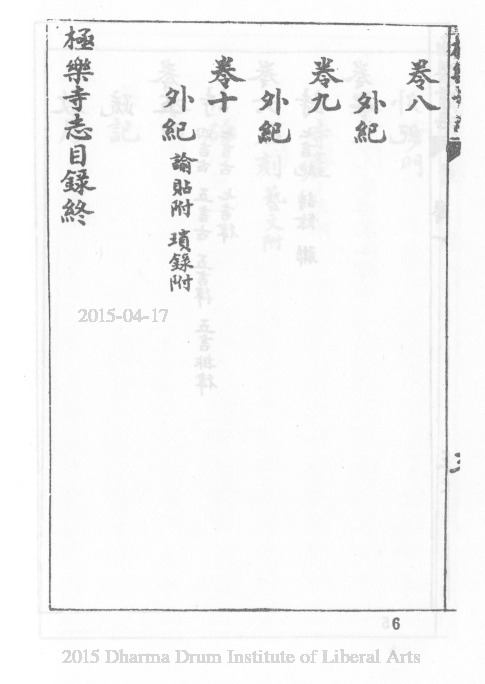 卷八
外紀
卷九
外紀
卷十
外紀 諭貼附 瑣錄附
極樂寺志目錄終
2015-04-17
6
2015 Dharma Drum Institute of Liberal Arts